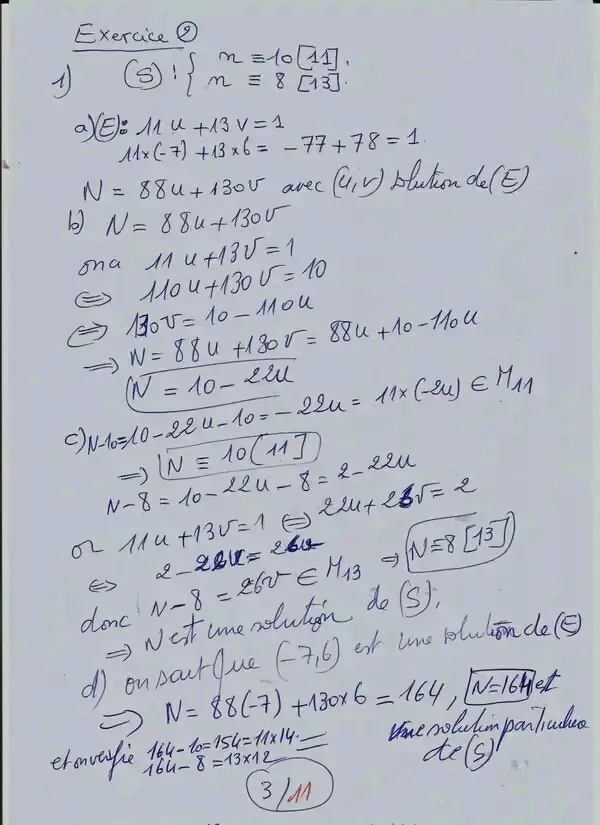 Exercice ②
1) (S): { n ≡ 10 [11].
n ≡ 8 [13].
a) (E): 11u + 13v = 1
11×(-7) + 13×6 = -77 + 78 = 1.
N = 88u + 130v avec (u,v) solution de (E)
b) N = 88u + 130v
on a 11u + 13v = 1
⇔ 110u + 130v = 10
⇔ 130v = 10 - 110u
⇒ N = 88u + 130v = 88u + 10 - 110u
N = 10 - 22u
c) N-10 = 10 - 22u - 10 = -22u = 11×(-2u) ∈ M11
⇒ N ≡ 10 [11]
N - 8 = 10 - 22u - 8 = 2 - 22u
or 11u + 13v = 1 ⇔ 22u + 26v = 2
⇔ 2 - 22u = 26v
donc N - 8 = 26v ∈ M13 ⇒ N ≡ 8 [13]
⇒ N est une solution de (S).
d) on sait que (-7,6) est une solution de (E)
⇒ N = 88(-7) + 130×6 = 164, N = 164 est
une solution particulière
de (S)
et on vérifie 164 - 10 = 154 = 11×14.
164 - 8 = 13×12
3/11